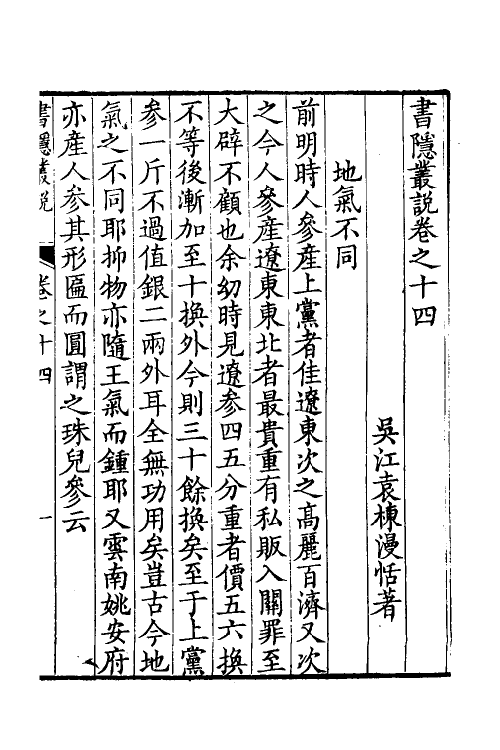 書隱叢說卷之十四
吳江袁棟漫恬著
地氣不同
前明時人參產上黨者佳遼東次之高麗百濟又次
之今人參產遼東東北者最貴重有私販入關罪至
大辟不顧也余幼時見遼参四五分重者價五六換
不等後漸加至十換外今則三十餘換矣至于上黨
参一斤不過值銀二兩外耳全無功用矣豈古今地
氣之不同耶抑物亦隨王氣而鍾耶又雲南姚安府
亦產人参其形匾而圓謂之珠兒參云
書隱叢說 卷之十四 一